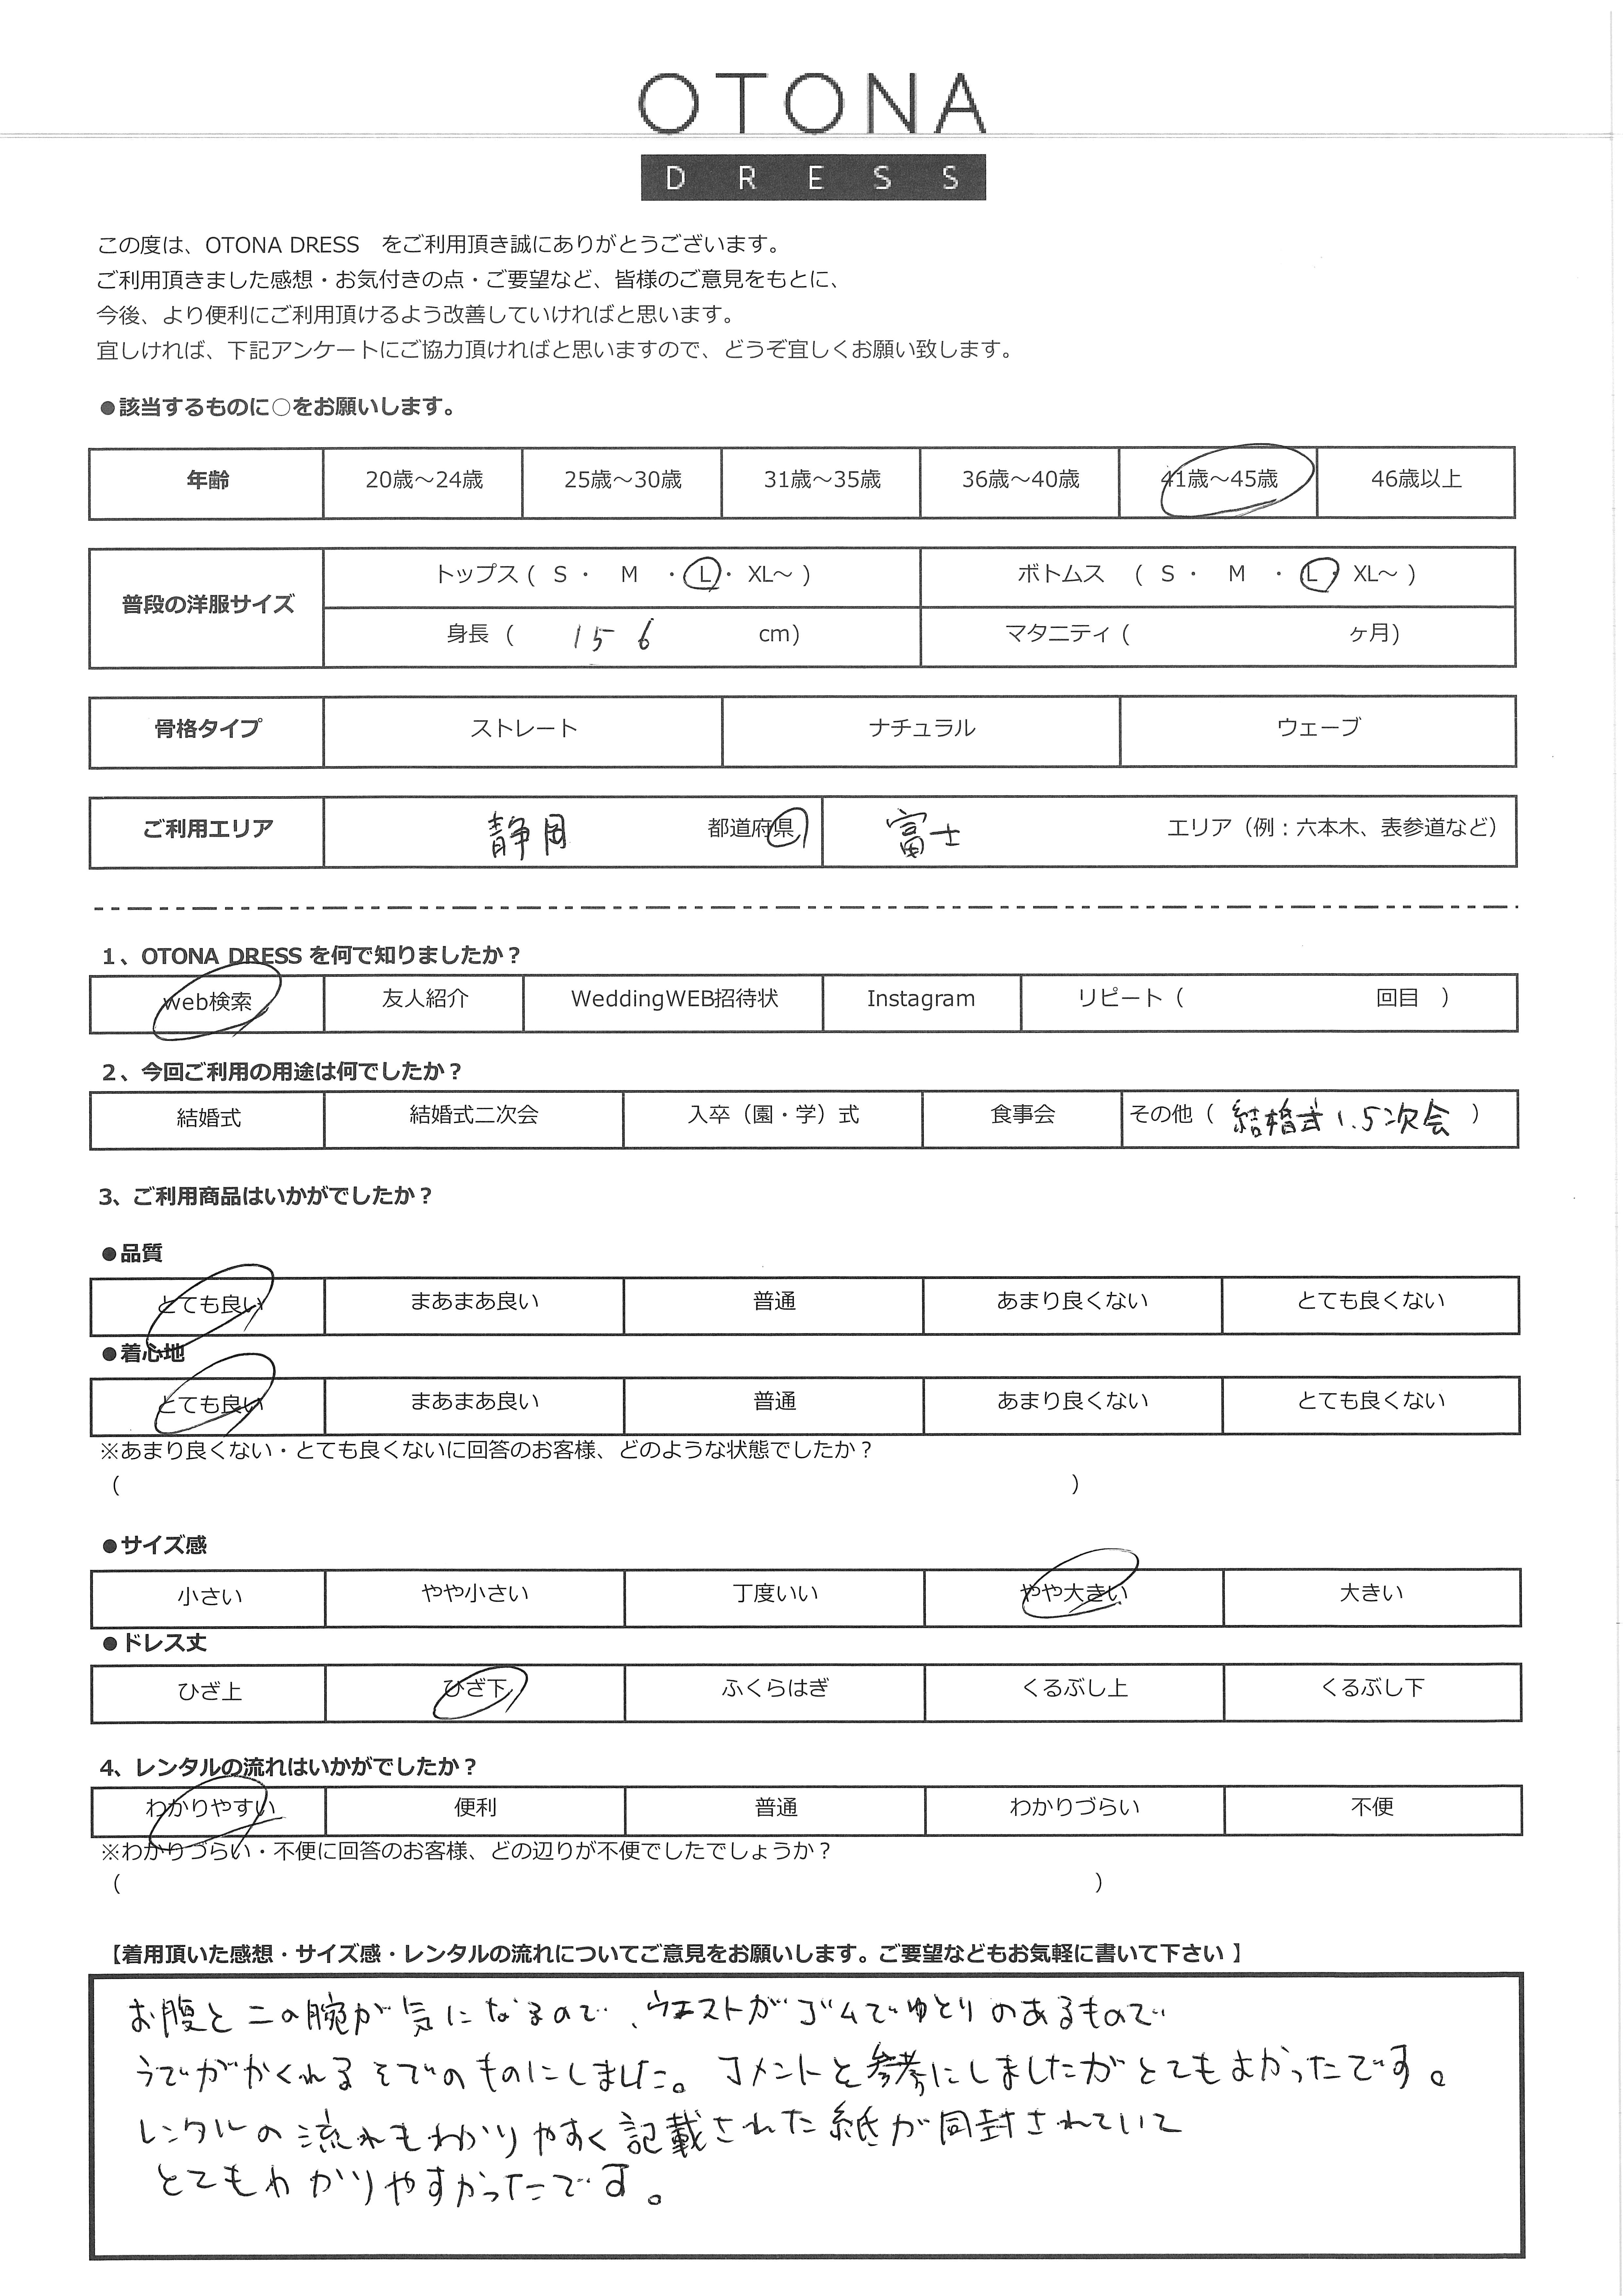 OTONA
DRESS
この度は、OTONA DRESS　をご利用頂き誠にありがとうございます。
ご利用頂きました感想・お気付きの点・ご要望など、皆様のご意見をもとに、
今後、より便利にご利用頂けるよう改善していければと思います。
宜しければ、下記アンケートにご協力頂ければと思いますので、どうぞ宜しくお願い致します。
●該当するものに○をお願いします。
年齢 20歳～24歳 25歳～30歳 31歳～35歳 36歳～40歳 41歳～45歳 46歳以上
普段の洋服サイズ
トップス ( S ・ M ・ L ・ XL～ ) ボトムス ( S ・ M ・ L ・ XL～ )
身長 ( 156 cm) マタニティ ( ヶ月)
骨格タイプ ストレート ナチュラル ウェーブ
ご利用エリア 静岡 都道府県 富士 エリア（例：六本木、表参道など）
1、OTONA DRESS を何で知りましたか？
web検索 友人紹介 WeddingWEB招待状 Instagram リピート（ 回目 ）
2、今回ご利用の用途は何でしたか？
結婚式 結婚式二次会 入卒（園・学）式 食事会 その他（ 結婚式1.5次会 ）
3、ご利用商品はいかがでしたか？
●品質
とても良い まあまあ良い 普通 あまり良くない とても良くない
●着心地
とても良い まあまあ良い 普通 あまり良くない とても良くない
※あまり良くない・とても良くないに回答のお客様、どのような状態でしたか？
（ ）
●サイズ感
小さい やや小さい 丁度いい やや大きい 大きい
●ドレス丈
ひざ上 ひざ下 ふくらはぎ くるぶし上 くるぶし下
4、レンタルの流れはいかがでしたか？
わかりやすい 便利 普通 わかりづらい 不便
※わかりづらい・不便に回答のお客様、どの辺りが不便でしたでしょうか？
（ ）
【着用頂いた感想・サイズ感・レンタルの流れについてご意見をお願いします。ご要望などもお気軽に書いて下さい 】
お腹と二の腕が気になるので、ウエストがゴムでゆとりのあるもので
うでがかくれるそでのものにしました。コメントを参考にしましたがとてもよかったです。
レンタルの流れもわかりやすく記載された紙が同封されていて
とてもわかりやすかったです。